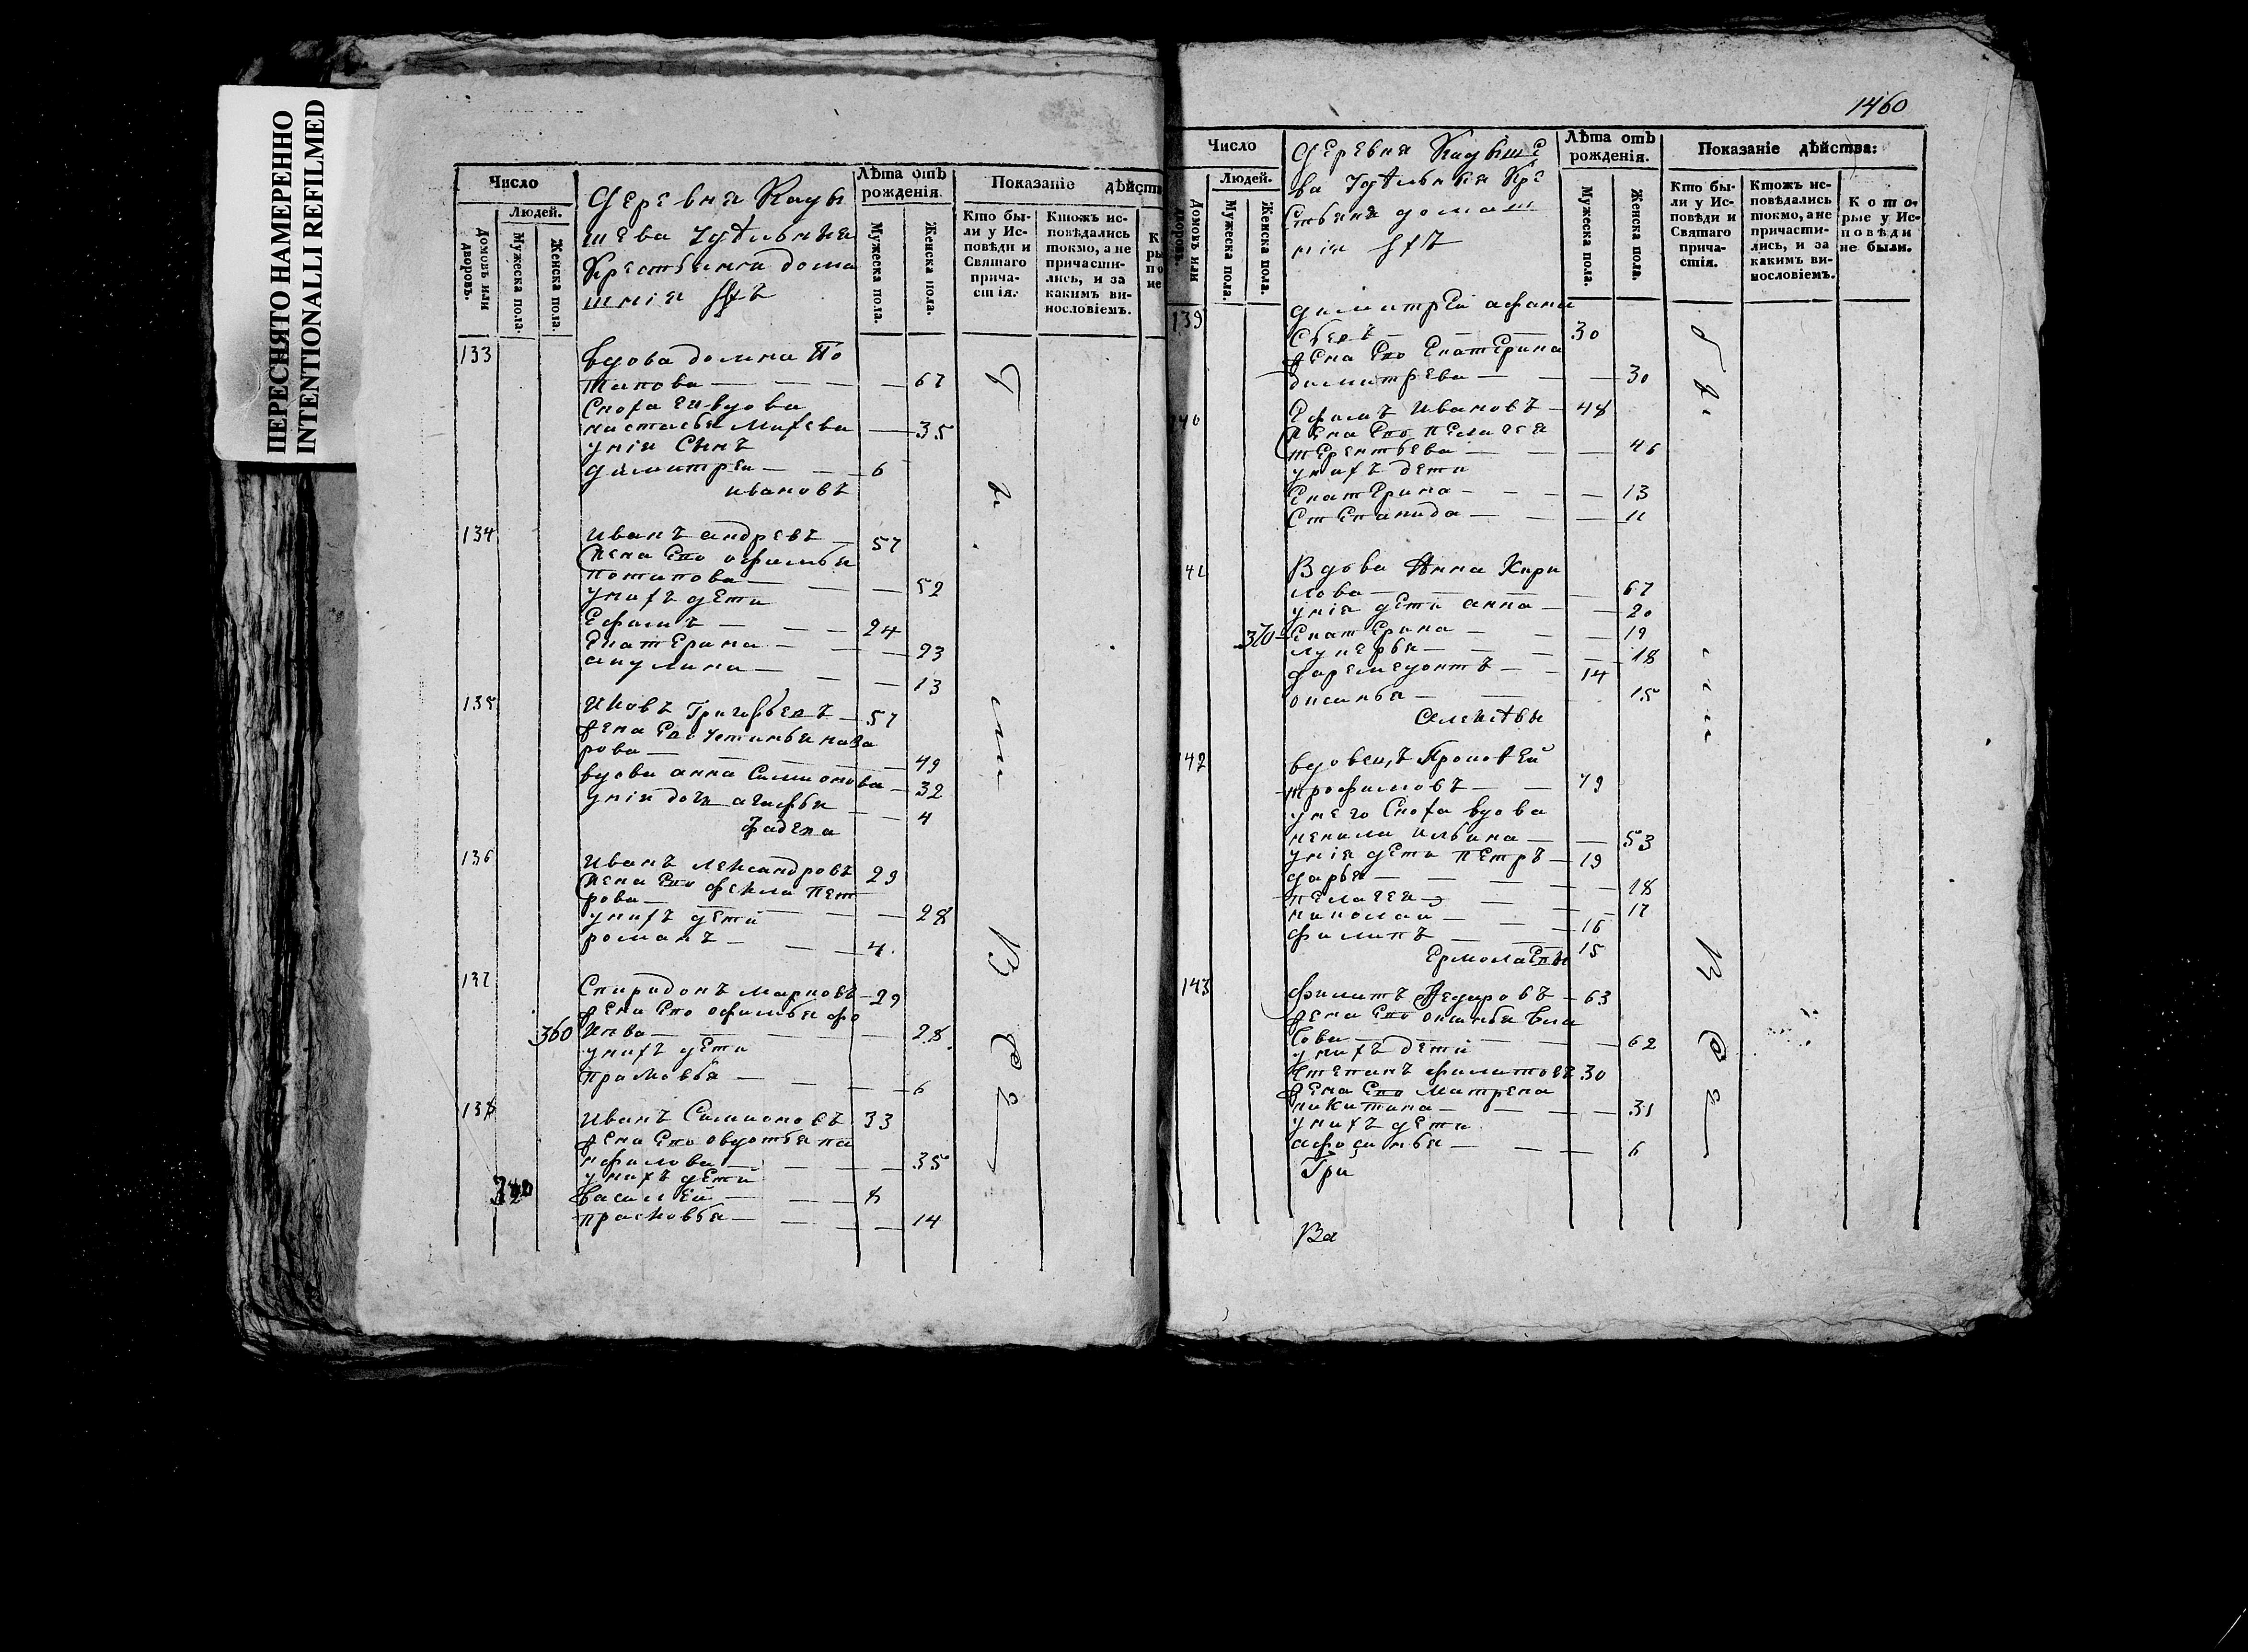 ПЕРЕСНЯТО НАМЕРЕННО
INTENTIONALLI REFILMED
Число
Людей.
Домовъ или дворовъ.
Мужеска пола.
Женска пола.
Деревня Кады
шева Удѣльныя
Крестьяня дома
шнія
Лѣта отъ
рожденія.
Мужеска пола.
Женска пола.
Показаніе дѣйств
Кто бы-
ли у Ис-
повѣди и
Святаго
прича-
стія.
Ктожъ ис-
повѣдались
токмо, а не
причасти-
лись, и за
какимъ ви-
нословіемъ.
133 вдова домна По
тапова — 67
Сноха ея вдова
настасья Михева — 35
унія Сынъ
димитрей — 6
ивановъ
134 Иванъ андревъ — 57
Жена Его офимья
потапова — 52
унихъ дети
Ефимъ — 24
Екатерина — 23
акулина — 13
135 Иковъ Григорьевъ — 57
Жена Его устинья наза
рова — 49
вдова анна Симионова — 32
унія дочь агафья — 4
Фадева
136 Иванъ лександровъ 29
Жена Его фекла Пет
рова — 28
унихъ дети
романъ — 4
137 Спиридонъ марковъ — 29
Жена Его офимья фо
360 кова — 28
унихъ дети
прасковья — 6
138 Иванъ Симионовъ 33
Жена Его овдотья па
нфилова — 35
унихъ дети
василей — 8
прасковья — 14
1460
Число
Людей.
Домовъ или дворовъ.
Мужеска пола.
Женска пола.
Деревня Кадыше
ва Удѣльныя Кре
стьяня домаш
нія
Лѣта отъ
рожденія.
Мужеска пола.
Женска пола.
Показаніе дѣйства:
Кто бы-
ли у Ис-
повѣди и
Святаго
прича-
стія.
Ктожъ ис-
повѣдались
токмо, а не
причасти-
лись, и за
какимъ ви-
нословіемъ.
Кото-
рые у Ис-
повѣди
не были.
139 димитрей афана
сьевъ — 30
Жена Его Екатерина
димитрева — 30
140 Ефимъ Ивановъ — 48
Жена Его пелагея
терентьева — 46
унихъ дети
Екатерина — 13
Степанида — 11
141 Вдова Анна Кири
лова — 67
унія дети анна — 20
370 Екатерина — 19
лукерья — 18
фармедонтъ — 14
оксинья — 15
142 вдовецъ Прокофей
трофимовъ — 79
унего Сноха вдова
ненила ильина — 53
унія дети петръ — 19
дарья — 18
пелагея — 17
николай — 16
филипъ — 15
Ермолаевы
143 филипъ Федоровъ — 63
Жена Его оксинья вла
сова — 62
унихъ дети
Степанъ филиповъ 30
Жена Его Матрена
никитина — 31
унихъ дети
афросинья — 6
Гри
Ва